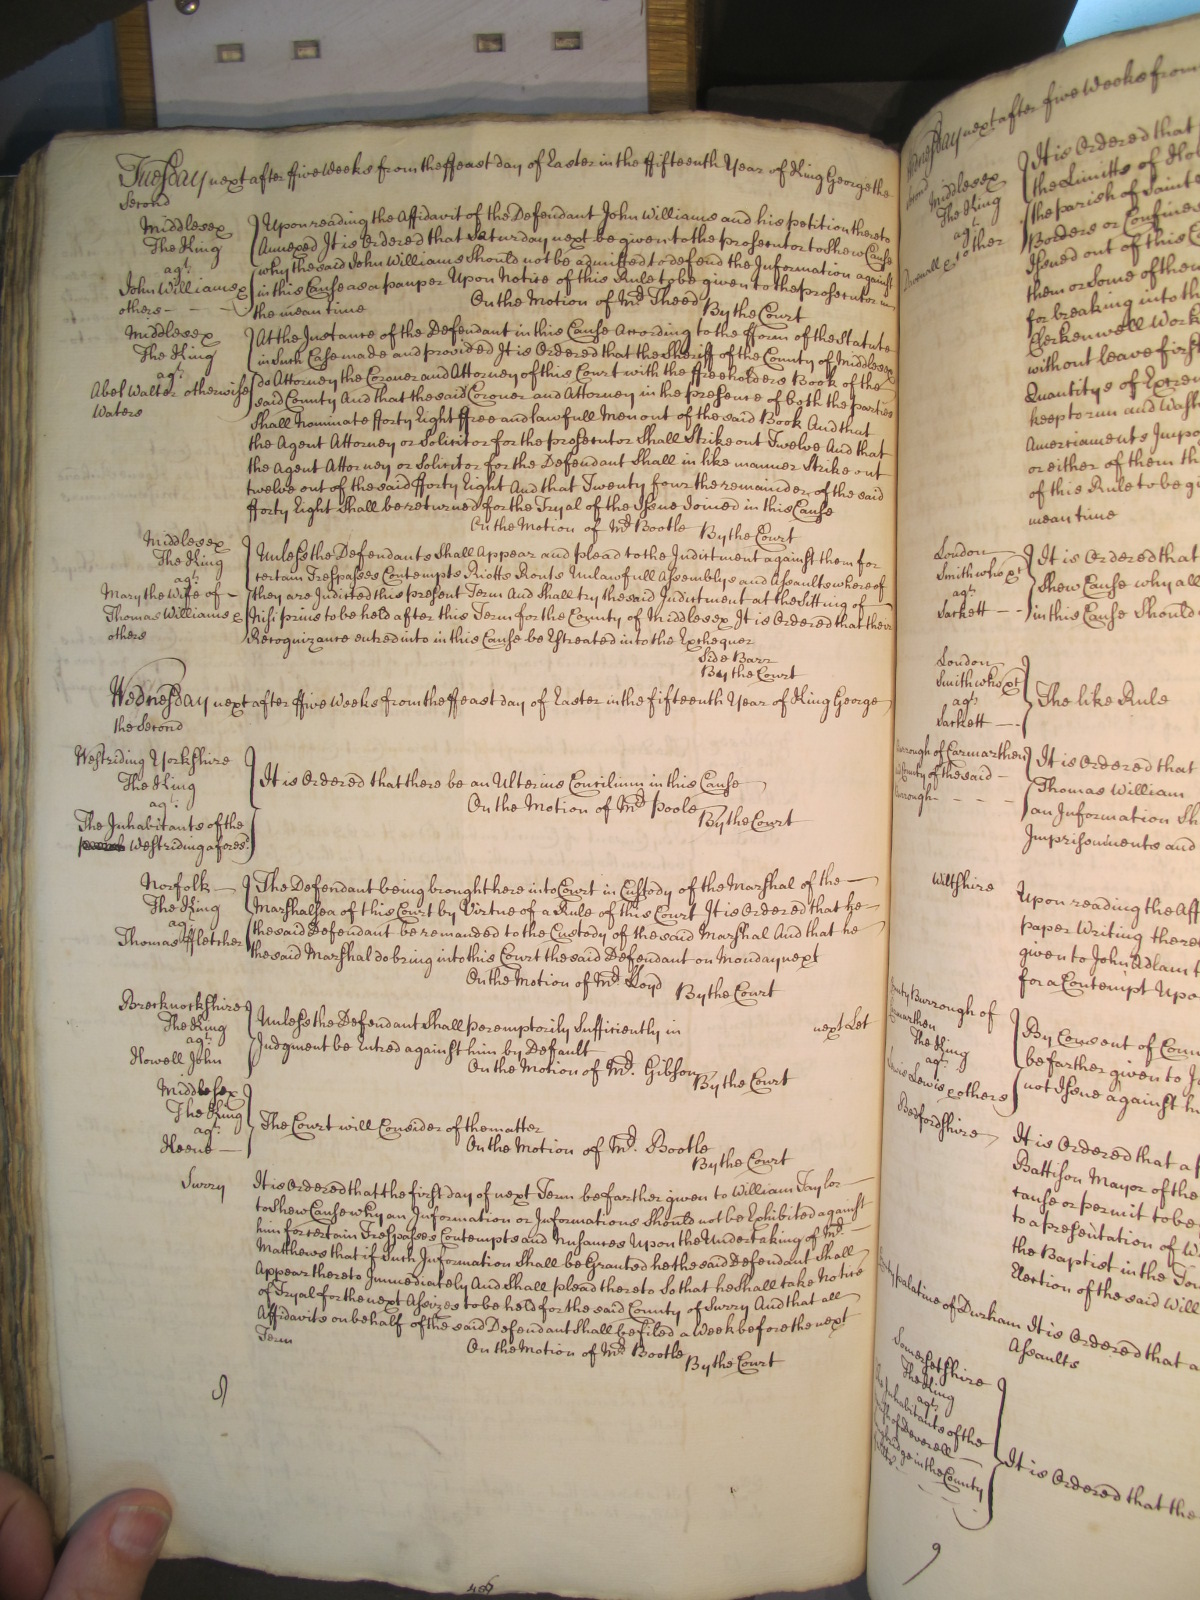 Tuesday next after ffive Weeks from the ffeast day of Easter in the ffifteenth Year of King George the
Second
Middlesex
The King
agt.
John Williams &
others
Upon reading the Affidavit of the Defendant John Williams and his petition thereto
Annexed It is Ordered that Saturday next be given to the prosecutor to Shew Cause
why the said John Williams Should not be admitted to defend the Information against
in this Cause as a pauper Upon Notice of this Rule to be given to the prosecutor in
the mean time
On the Motion of Mr. Theed
By the Court
Middlesex
The King
agt.
Abel Walter otherwise
Waters
At the Instance of the Defendant in this Cause According to the fform of the Statute
in Such Case made and provided It is Ordered that the Sheriff of the County of Middlesex
do Attorney the Coroner and Attorney of this Court with the ffreeholders Book of the
said County And that the said Coroner and Attorney in the presence of both the parties
Shall Nominate fforty Eight ffree and lawfull Men out of the said Book And that
the Agent Attorney or Solicitor for the prosecutor Shall Strike out Twelve And that
the Agent Attorney or Solicitor for the Defendant Shall in like manner Strike out
twelve out of the said fforty Eight And that Twenty four the remainder of the said
fforty Eight Shall be returned for the Tryal of the Issue Joined in this Cause
On the Motion of Mr. Bootle By the Court
Middlesex
The King
agt.
Mary the Wife of
Thomas Williams &
others
Unless the Defendants Shall Appear and plead to the Indictment against them for
certain Trespasses Contempts Riotts Routs Unlawfull Assemblys and Assaults whereof
they are Indicted this present Term And Shall try the said Indictment at the Sitting of
Nisi prius to be held after this Term for the County of Middlesex It is Ordered that their
Recognizance entred into in this Cause be Estreated into the Exchequer
Side Barr
By the Court
Wednesday next after ffive Weeks from the ffeast day of Easter in the fifteenth Year of King George
the Second
Westriding Yorkshire
The King
agt.
The Inhabitants of the
Westriding afores'd
It is Ordered that there be an Ulterius Concilium in this Cause
On the Motion of Mr. Poole
By the Court
Norfolk
The King
agt.
Thomas ffletcher
The Defendant being brought here into Court in Custody of the Marshal of the
Marshalsea of this Court by Virtue of a Rule of this Court It is Ordered that he
the said Defendant be remanded to the Custody of the said Marshal And that he
the said Marshal do bring into this Court the said Defendant on Monday next
On the Motion of Mr. Lloyd By the Court
Brecknockshire
The King
agt.
Howell John
Unless the Defendant Shall peremptorily Sufficiently in next Let
Judgment be Entred against him by Default
On the Motion of Mr. Gibson
By the Court
Middlesex
The King
agt.
Keene
The Court will Consider of the matter
On the Motion of Mr. Bootle
By the Court
Surry
It is Ordered that the first day of next Term be farther given to William Taylor
to Shew Cause why an Information or Informations Should not be Exhibited against
him for certain Trespasses Contempts and Nusances Upon the Undertaking of Mr.
Matthews that if Such Information Shall be Granted he the said Defendant Shall
Appear thereto Immediately And Shall plead thereto So that he Shall take Notice
of Tryal for the next Assizes to be held for the said County of Surry And that all
Affidavits on behalf of the said Defendant Shall be filed a Week before the next
Term
On the Motion of Mr. Bootle
By the Court
Wednesday next after five Weeks from
Second
Middlesex
The King
agt.
other
It is Ordered that
the Limitts of
the parish of Sainte
Borders or Confines
Issued out of this C
them or Some of them
for breaking into th
Clerkenwell Work
without leave first
Quantitys of Extrem
keep to run and Wash
Amerciaments Impo
or either of them th
of this Rule to be gi
mean time
London
Smith who &c
agt.
Sackett
It is Ordered that
Shew Cause why all
in this Cause Should
London
Smith who &c
agt.
Sackett
The like Rule
Burrough of Carmarthen
County of the said
Burrough
It is Ordered that
Thomas William
an Information Sh
Imprisonments and
Wiltshire
Upon reading the Aff
paper Writing there
given to John Adlam t
for a Contempt Upo
County Burrough of
Carmarthen
The King
agt.
Lewis Lewis & others
By Consent of Coun
be farther given to J
not Issue against h
Bedfordshire
It is Ordered that a
Battison Mayor of the
cause or permit to be
to a presentation of W
the Baptist in the To
Election of the said Will
County palatine of Durham It is Ordered that a
Assaults
Somersetshire
The King
agt.
The Inhabitants of the
in the County
It is Ordered that the